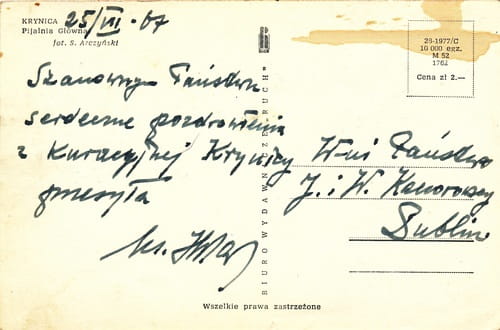 KRYNICA
Pijalnia Główna
fot. S. Arczyński
25/VII - 67
28-1977/C
10 000 egz.
M 52
1762
Cena zł 2.—
Szanownym Państwu
serdeczne pozdrowienia
z kuracyjnej Krynicy
przesyła
BIURO WYDAWNICZE „RUCH”
W-ni Państwo
J. i W.
Lublin
Wszelkie prawa zastrzeżone